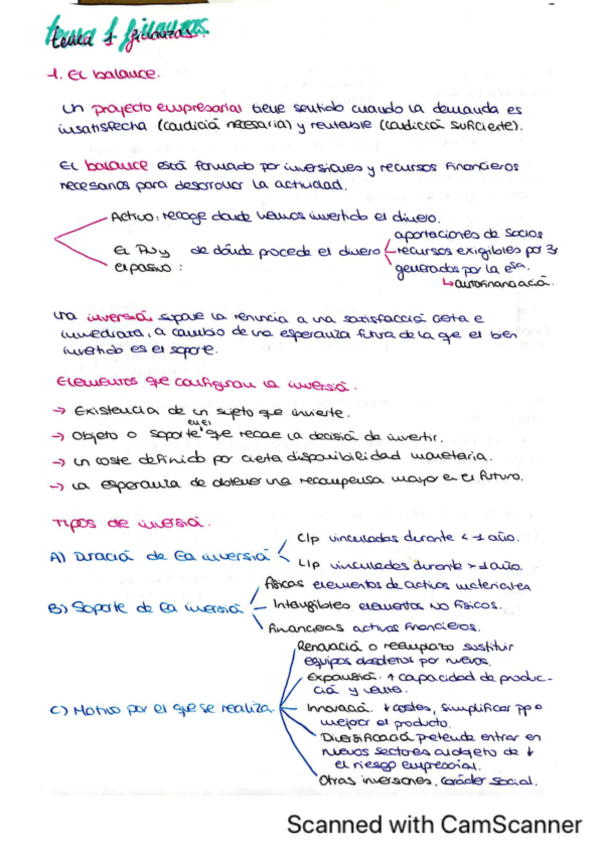 tema 1 finanzas.
1. El balance.
un proyecto empresarial tiene sentido cuando la demanda es
insatisfecha (condición necesaria) y rentable (condición suficiente).
El balance está formado por inversiones y recursos financieros
necesarios para desarrollar la actividad.
Activo: recoge donde hemos invertido el dinero.
El PN y el pasivo: de dónde procede el dinero
aportaciones de socios
recursos exigibles por 3s
generados por la esa.
↳ autofinanciación.
una inversión supone la renuncia a una satisfacción cierta e
inmediata, a cambio de una esperanza futura de la que el bien
invertido es el soporte.
Elementos que configuran la inversión.
→ Existencia de un sujeto que invierte.
→ Objeto o soporte en el que recae la decisión de invertir.
→ un coste definido por cierta disponibilidad monetaria.
→ la esperanza de obtener una recompensa mayor en el futuro.
Tipos de inversión.
A) Duración de la inversión
C/p vinculadas durante < 1 año.
L/p vinculadas durante > 1 año.
B) Soporte de la inversión
Físicas elementos de activos materiales
Intangibles elementos no físicos.
Financieras activos financieros.
C) Motivo por el que se realiza.
Renovación o reemplazo sustituir
equipos obsoletos por nuevos.
Expansión. ↑ capacidad de produc-
ción y venta.
Innovación. ↓ costes, simplificar pp o
mejorar el producto.
Diversificación pretende entrar en
nuevos sectores c/objeto de ↓
el riesgo empresarial.
Otras inversiones, carácter social.
Scanned with CamScanner